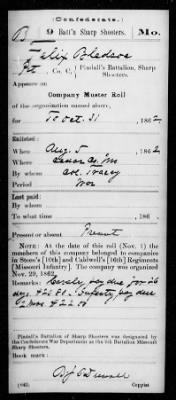 (Confederate.)
B 9 Batt'n Sharp Shooters. Mo.
Felix Bledsoe
Pt, Co. C, Pindall's Battalion, Sharp Shooters.
Appears on
Company Muster Roll
of the organization named above,
for to Oct. 31, 1862.
Enlisted:
When Aug. 5, 1862.
Where Mo
By whom Col. Tracy
Period War
Last paid:
By whom
To what time 186 .
Present or absent Present
NOTE: At the date of this roll (Nov. 1) the
members of this company belonged to companies
in Steen's [10th] and Caldwell's [16th] Regiments
[Missouri Infantry]. The company was organized
Nov. 29, 1862.
Remarks: Cavalry pay due for 26
days. Infantry pay due
2 mos. $22.00
Pindall's Battalion of Sharp Shooters was designated by
the Confederate War Department as the 9th Battalion Missouri
Sharp Shooters.
Book mark:
(642)
Copyist.